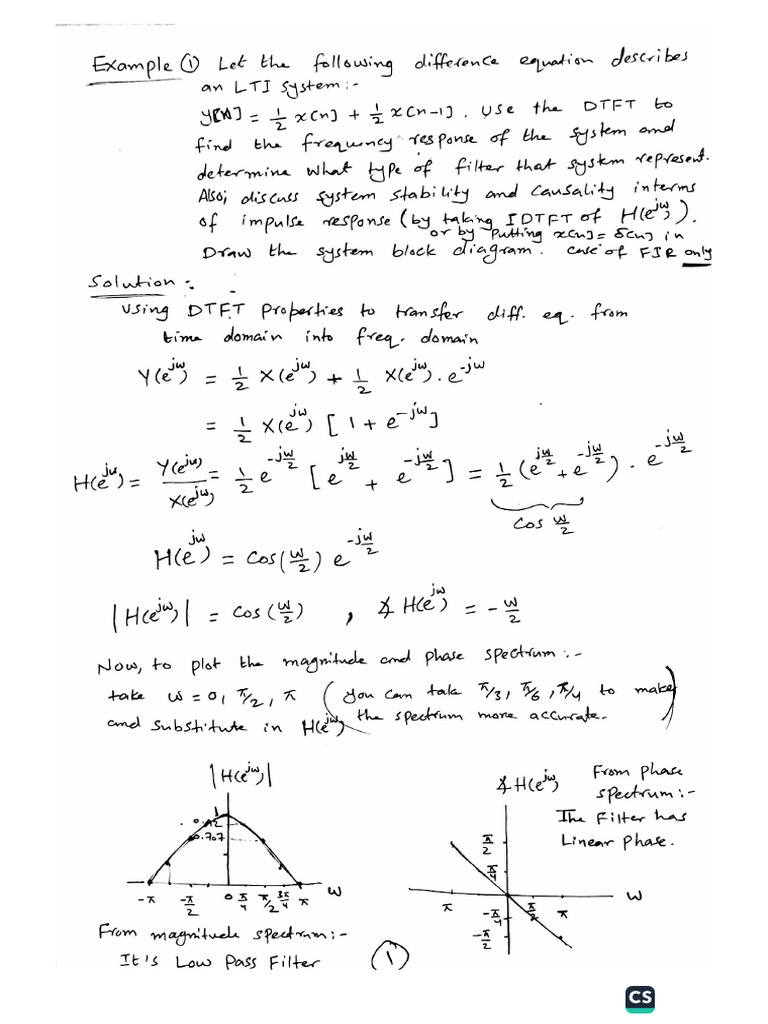 Example ① Let the following difference equation describes
an LTI system:-
y[n] = 1/2 x[n] + 1/2 x[n-1]. Use the DTFT to
find the frequency response of the system and
determine what type of filter that system represent.
Also; discuss system stability and causality interms
of impulse response (by taking IDTFT of H(e^jw)).
or by putting x[n] = δ[n] in
Draw the system block diagram. case of FIR only
Solution :-
Using DTFT Properties to transfer diff. eq. from
time domain into freq. domain
Y(e^jw) = 1/2 X(e^jw) + 1/2 X(e^jw). e^-jw
= 1/2 X(e^jw) [1 + e^-jw]
H(e^jw) = Y(e^jw)/X(e^jw) = 1/2 e^-jw/2 [e^jw/2 + e^-jw/2] = 1/2 (e^jw/2 + e^-jw/2) . e^-jw/2
Cos w/2
H(e^jw) = Cos(w/2) e^-jw/2
|H(e^jw)| = Cos(w/2) , ∡ H(e^jw) = - w/2
Now, to plot the magnitude and phase spectrum:-
take w = 0, π/2, π (you can take π/3, π/6, π/4 to make
and substitute in H(e^jw) the spectrum more accurate.)
|H(e^jw)|
1
0.707
-π -π/2 0 π/4 π/2 3π/4 π w
From magnitude spectrum:-
It's Low Pass Filter
∡ H(e^jw)
π/2
π/4
π π/2 π w
-π/4
-π/2
From phase
spectrum:-
The Filter has
Linear phase.
①
CS